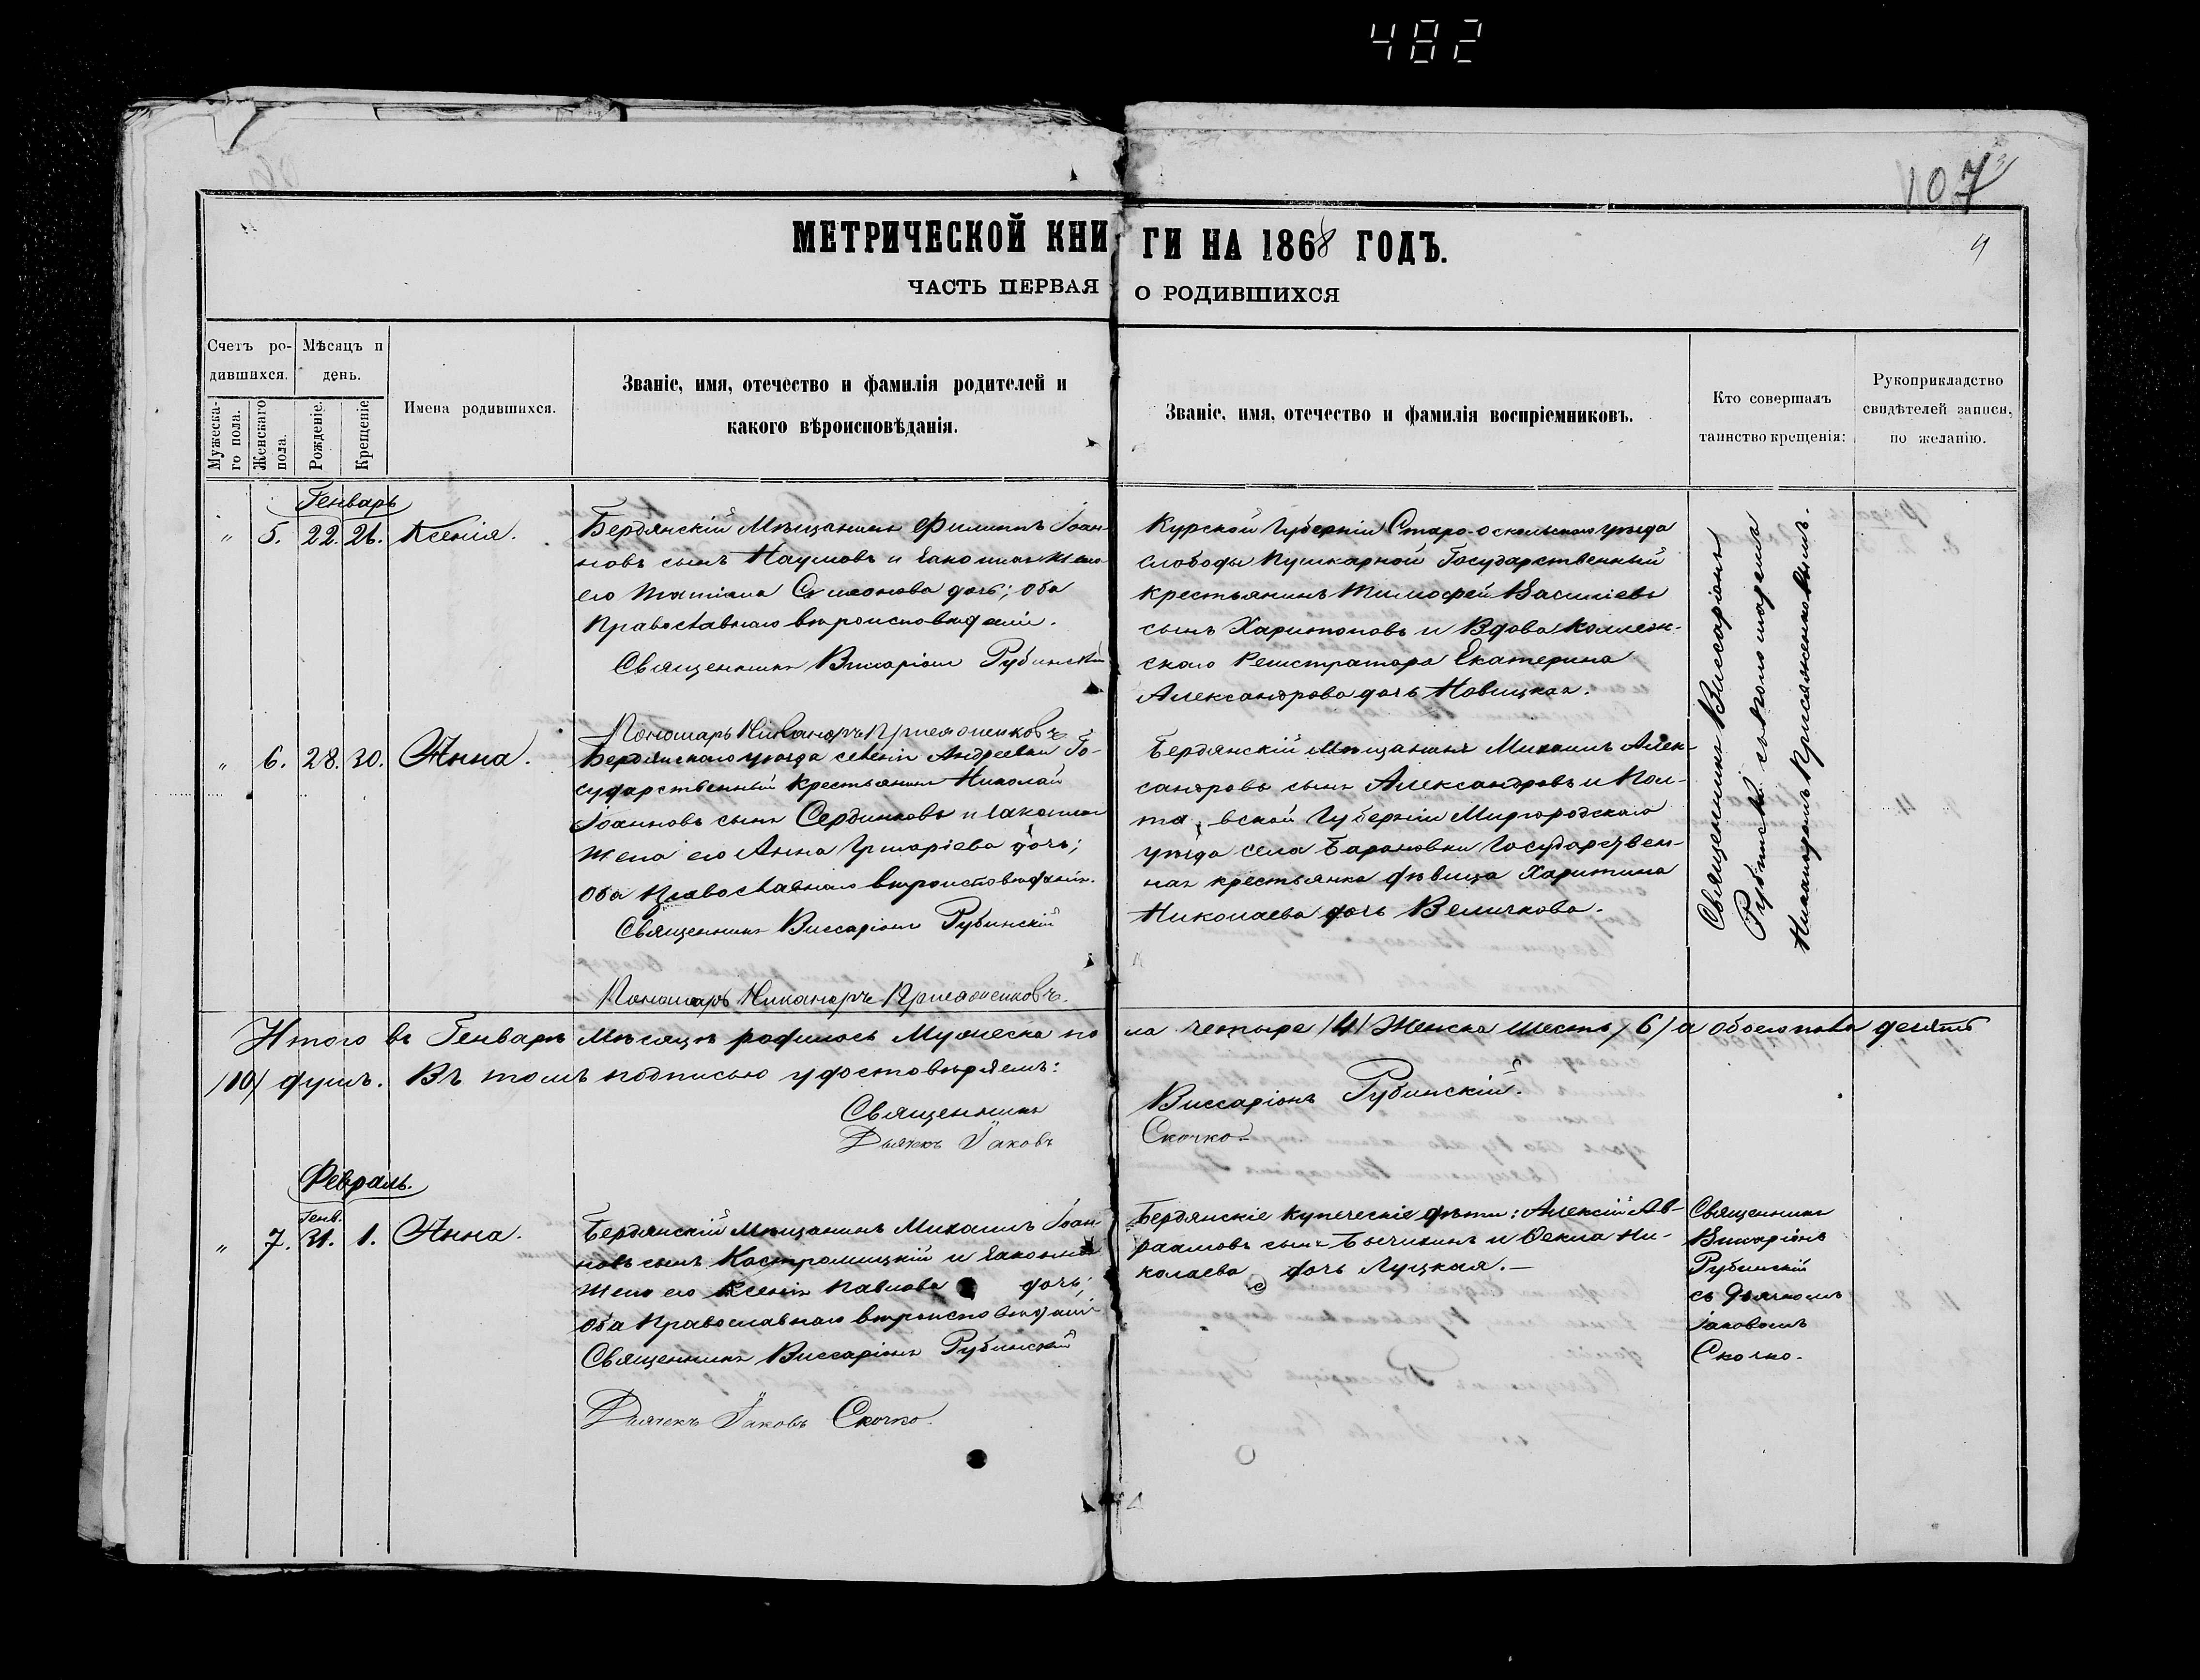 482
107
МЕТРИЧЕСКОЙ КНИГИ НА 1868 ГОДЪ.
ЧАСТЬ ПЕРВАЯ О РОДИВШИХСЯ
Счетъ ро-
дившихся.
Мужеска-
го пола.
Женскаго
пола.
Мѣсяцъ и
день.
Рожденіе.
Крещеніе
Имена родившихся.
Званіе, имя, отечество и фамилія родителей и
какого вѣроисповѣданія.
Званіе, имя, отечество и фамилія воспріемниковъ.
Кто совершалъ
таинство крещенія:
Рукоприкладство
свидѣтелей записи,
по желанію.
Генварь
" 5. 22. 26. Ксенія.
Бердянскій Мѣщанинъ Филиппъ Іоан-
новъ сынъ Наумовъ и Законная жена
его Татіана Симонова дочь; оба
Православнаго вѣроисповѣданія.
Священникъ Виссаріонъ Рубинскій
Пономарь Никаноръ
Курской Губерніи Старо-Оскольскаго уѣзда
слободы Пушкарной Государственный
крестьянинъ Тимофей Василіевъ
сынъ Харитоновъ и Вдова Коллеж-
скаго Регистратора Екатерина
Александрова дочь Новицкая.
" 6. 28. 30. Анна.
Бердянскаго уѣзда селенія Андреевки Го-
сударственный крестьянинъ Николай
Іоанновъ сынъ Сердюковъ и Законная
жена его Анна Григоріева дочь;
оба Православнаго вѣроисповѣданія.
Священникъ Виссаріонъ Рубинскій
Пономарь Никаноръ
Бердянскій Мѣщанинъ Михаилъ Алек-
сандровъ сынъ Александровъ и Пол-
тавской Губерніи Миргородскаго
уѣзда села Барановки Государствен-
ная крестьянка дѣвица Харитина
Николаева дочь Величкова.
Священникъ Виссаріонъ
Рубинскій съ пономаремъ
Никаноромъ
Итого въ Генварѣ Мѣсяцѣ родилось Мужеска пола четыре /4/ Женска шесть /6/ а обоего пола десять
/10/ душъ. Въ томъ подписью удостовѣряемъ:
Священникъ Виссаріонъ Рубинскій.
Дьячекъ Іаковъ Скочко.
Февраль.
Генв.
" 7. 31. 1. Анна.
Бердянскій Мѣщанинъ Михаилъ Іоан-
новъ сынъ Костромицкій и Законная
жена его Ксенія Павлова дочь;
оба Православнаго вѣроисповѣданія
Священникъ Виссаріонъ Рубинскій
Дьячекъ Іаковъ Скочко.
Бердянскіе купеческіе дѣти: Алексій Ав-
раамовъ сынъ Бычихинъ и Ѳекла Ни-
колаева дочь Луцкая.—
Священникъ
Виссаріонъ
Рубинскій
съ дьячкомъ
Іаковомъ
Скочко.